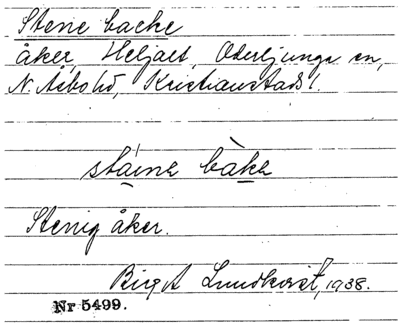 Stene backe
åker, Heljalt, Oderljunga sn,
N. Åsbo hd, Kristianstads l.
stáinə bàkə
Stenig åker.
Birgit Lundkvist, 1938.
Nr 5499.